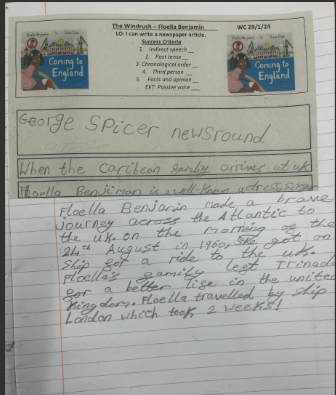 The Windrush – Floella Benjamin
WC 29/1/24
LO: I can write a newspaper article.
Success Criteria
1. Indirect speech
2. Past tense
3. Chronological order
4. Third person
5. Facts and opinion
EXT: Passive voice
Coming to
England
Coming to
England
George Spicer newsround
When the Caribean gamby arrives at uk
Floella Benjiman is a well-known actress,
Floella Benjamin made a brave
journey across the Atlantic to
the uk. on the morning of the
24th August in 1960, she got on
ship gor a ride to the uk.
Floella's gamily left Trinadad
gor a better lige in the united
Kingdom. Floella travelled by ship
London which took 2 weeks!